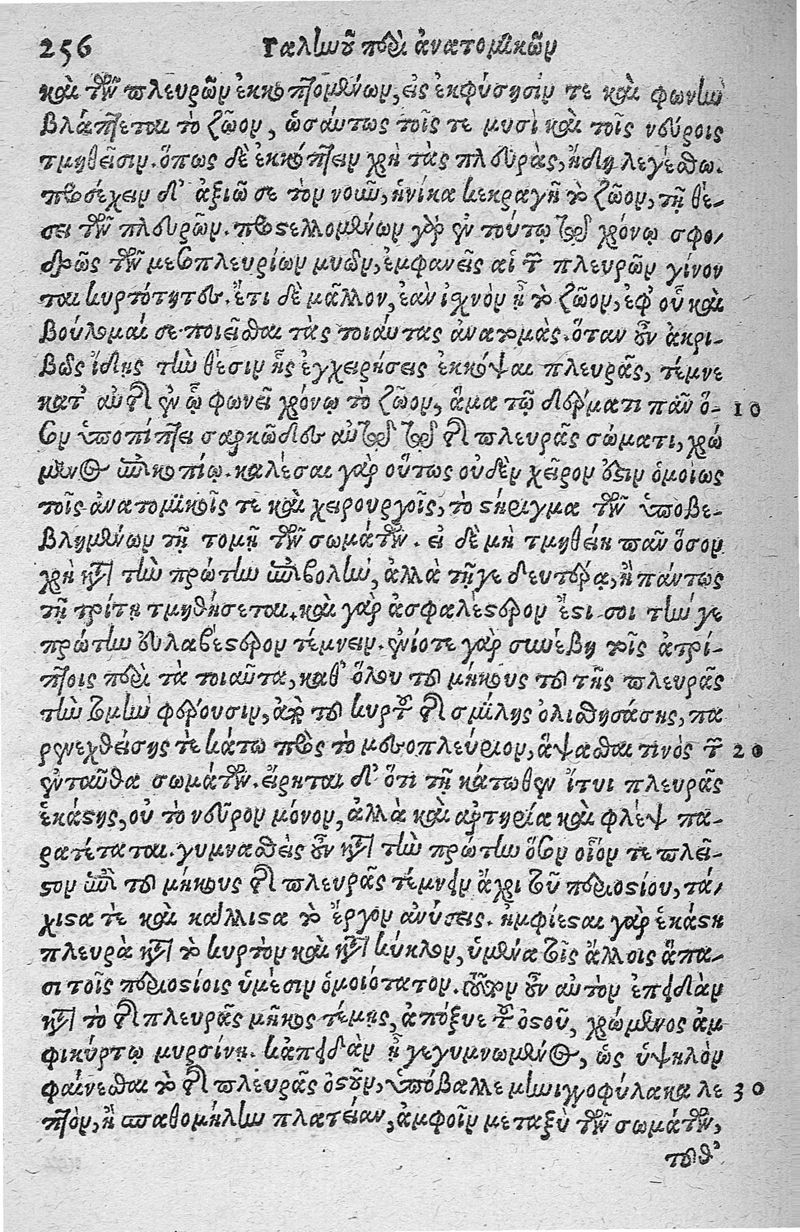 256 Γαλίωοῦ περὶ ἀνατομικῶν
καὶ τῶν πλευρῶν ἐκκοπτομένων, εἰς ἐκφύσησίν τε καὶ φωνὴν
βλάπτεται τὸ ζῶον, ὡσάυτως τοῖς τε μυσὶ καὶ τοῖς νεύροις
τμηθεῖσιν. ὅπως δὲ ἐκκόπτειν χρὴ τὰς πλευρὰς, ἤδη λεγέσθω.
προσέχειν δ᾽ ἀξιῶ σε τὸν νοῦν, ἡνίκα κεκραγῇ τὸ ζῶον, τῇ θέ-
σει τῶν πλευρῶν. προστελλομένων γὰρ ἐν τούτῳ τῷ χρόνῳ σφο-
δρῶς τῶν μεσοπλευρίων μυῶν, ἐμφανεῖς αἱ τῶν πλευρῶν γίνον
ται κυρτότητες. ἔτι δὲ μᾶλλον, ἐὰν ἰχνὸν ᾖ τὸ ζῶον, ἐφ᾽ οὗ καὶ
βούλομαί σε ποιεῖσθαι τὰς τοιάυτας ἀνατομάς. ὅταν οὖν ἀκρι-
βῶς ἴδῃς τὴν θέσιν ἧς ἐγχειρήσεις ἐκκόψαι πλευρᾶς, τέμνε
κατ᾽ αὐτῆς ἐν ᾧ φωνεῖ χρόνῳ τὸ ζῶον, ἅμα τῷ δέρματι πᾶν ὅ- 10
σον ὑποπίπτει σαρκῶδες αὐτῷ τῷ τῆς πλευρᾶς σώματι, χρώ
μενος ἐπικοπίῳ. καλέσαι γὰρ οὕτως οὐδὲν χεῖρον ἐστιν ὁμοίως
τοῖς ἀνατομικοῖς τε καὶ χειρουργοῖς, τὸ στήριγμα τῶν ὑποβε-
βλημένων τῇ τομῇ τῶν σωμάτων. εἰ δὲ μὴ τμηθείη πᾶν ὅσον
χρὴ κατὰ τὴν πρώτην ἐπιβολὴν, ἀλλὰ τῇ γε δευτέρᾳ, ἢ πάντως
τῇ τρίτῃ τμηθήσεται. καὶ γὰρ ἀσφαλέστερον ἔστι σοι τήν γε
πρώτην εὐλαβέστερον τέμνειν. ἐνίοτε γὰρ συνέβη τοῖς ἀτρί-
πτοις περὶ τὰ τοιαῦτα, καθ᾽ ὅλου τοῦ μήκους τοῦ τῆς πλευρᾶς
τὴν τομὴν φέρουσιν, ἀπὸ τοῦ κυρτοῦ τῆς σμίλης ὀλισθησάσης, πα
ρενεχθείσης τὲ κάτω πρὸς τὸ μεσοπλεύριον, ἅψασθαι τινὸς τῶν 20
ἐνταῦθα σωμάτων. εἴρηται δ᾽ ὅτι τῇ κάτωθεν ἴτυι πλευρᾶς
ἑκάστης, οὐ τὸ νεῦρον μόνον, ἀλλὰ καὶ ἀρτηρία καὶ φλὲψ πα-
ρατέταται. γυμνασθεὶς οὖν κατὰ τὴν πρώτην ὅσον οἷόν τε πλεῖ-
στον ἐπὶ τοῦ μήκους τῆς πλευρᾶς τέμνειν ἄχρι τοῦ περιοστίου, τά-
χιστα τὲ καὶ κάλλιστα τὸ ἔργον ἀνύσεις. ἠμφίεσται γὰρ ἑκάστη
πλευρὰ κατὰ τὸ κυρτὸν καὶ κατὰ κύκλον, ὑμένα τοῖς ἄλλοις ἅπα-
σι τοῖς περιοστίοις ὑμέσιν ὁμοιότατον. τοῦτον οὖν αὐτὸν ἐπειδὰν
κατὰ τὸ τῆς πλευρᾶς μῆκος τέμῃς, ἀπόξυε τοῦ ὀστοῦ, χρώμενος ἀμ
φικύρτῳ μυρσίνῃ. κἀπειδὰν ᾖ γεγυμνωμένος, ὡς ὑψηλὸν
φαίνεσθαι τὸ τῆς πλευρᾶς ὀστοῦν, ὑπόβαλλε μηνιγγοφύλακα λε 30
πτὸν, ἢ σπαθομήλην πλατεῖαν, ἀμφοῖν μεταξὺ τῶν σωμάτων,
τοῦθ᾽